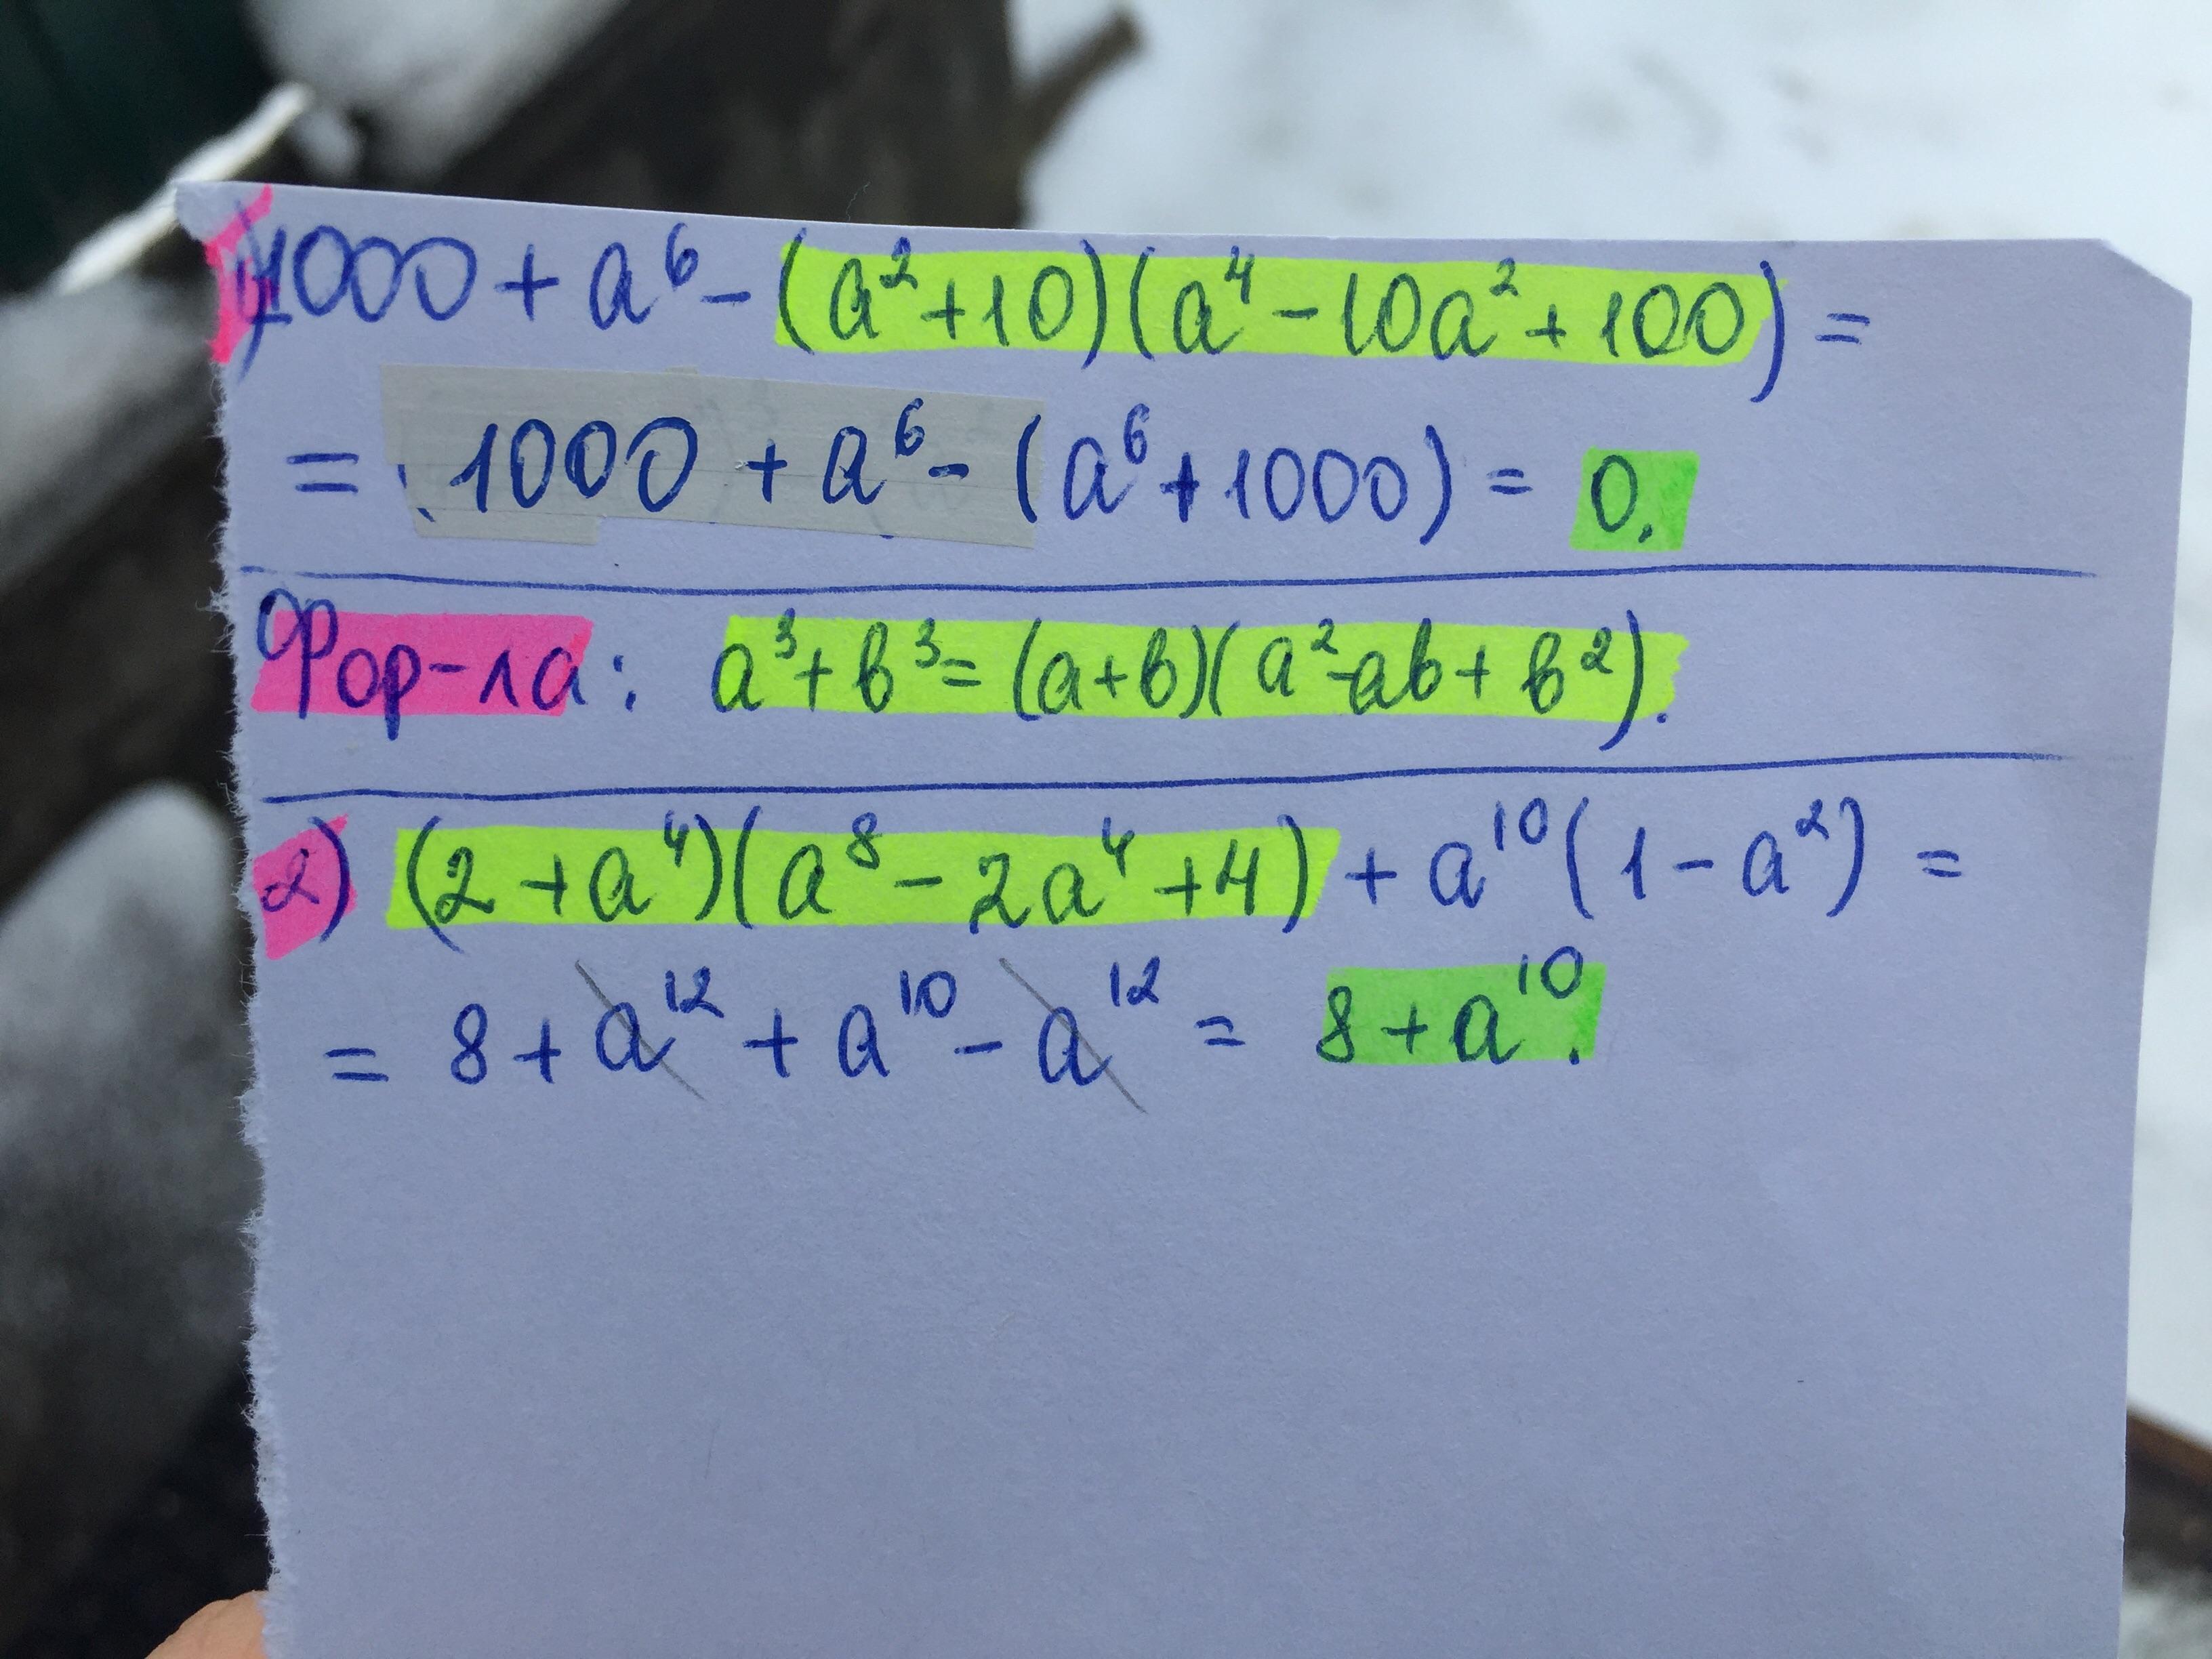 1) 1000 + a⁶ - (a² + 10)(a⁴ - 10a² + 100) =
= 1000 + a⁶ - (a⁶ + 1000) = 0.
Фор-ла: a³ + b³ = (a + b)(a² - ab + b²).
2) (2 + a⁴)(a⁸ - 2a⁴ + 4) + a¹⁰(1 - a²) =
= 8 + a¹² + a¹⁰ - a¹² = 8 + a¹⁰.